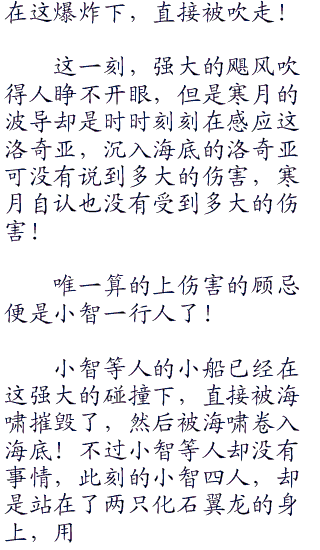 在这爆炸下，直接被吹走！
这一刻，强大的飓风吹
得人睁不开眼，但是寒月的
波导却是时时刻刻在感应这
洛奇亚，沉入海底的洛奇亚
可没有说到多大的伤害，寒
月自认也没有受到多大的伤
害！
唯一算的上伤害的顾忌
便是小智一行人了！
小智等人的小船已经在
这强大的碰撞下，直接被海
啸摧毁了，然后被海啸卷入
海底！不过小智等人却没有
事情，此刻的小智四人，却
是站在了两只化石翼龙的身
上，用